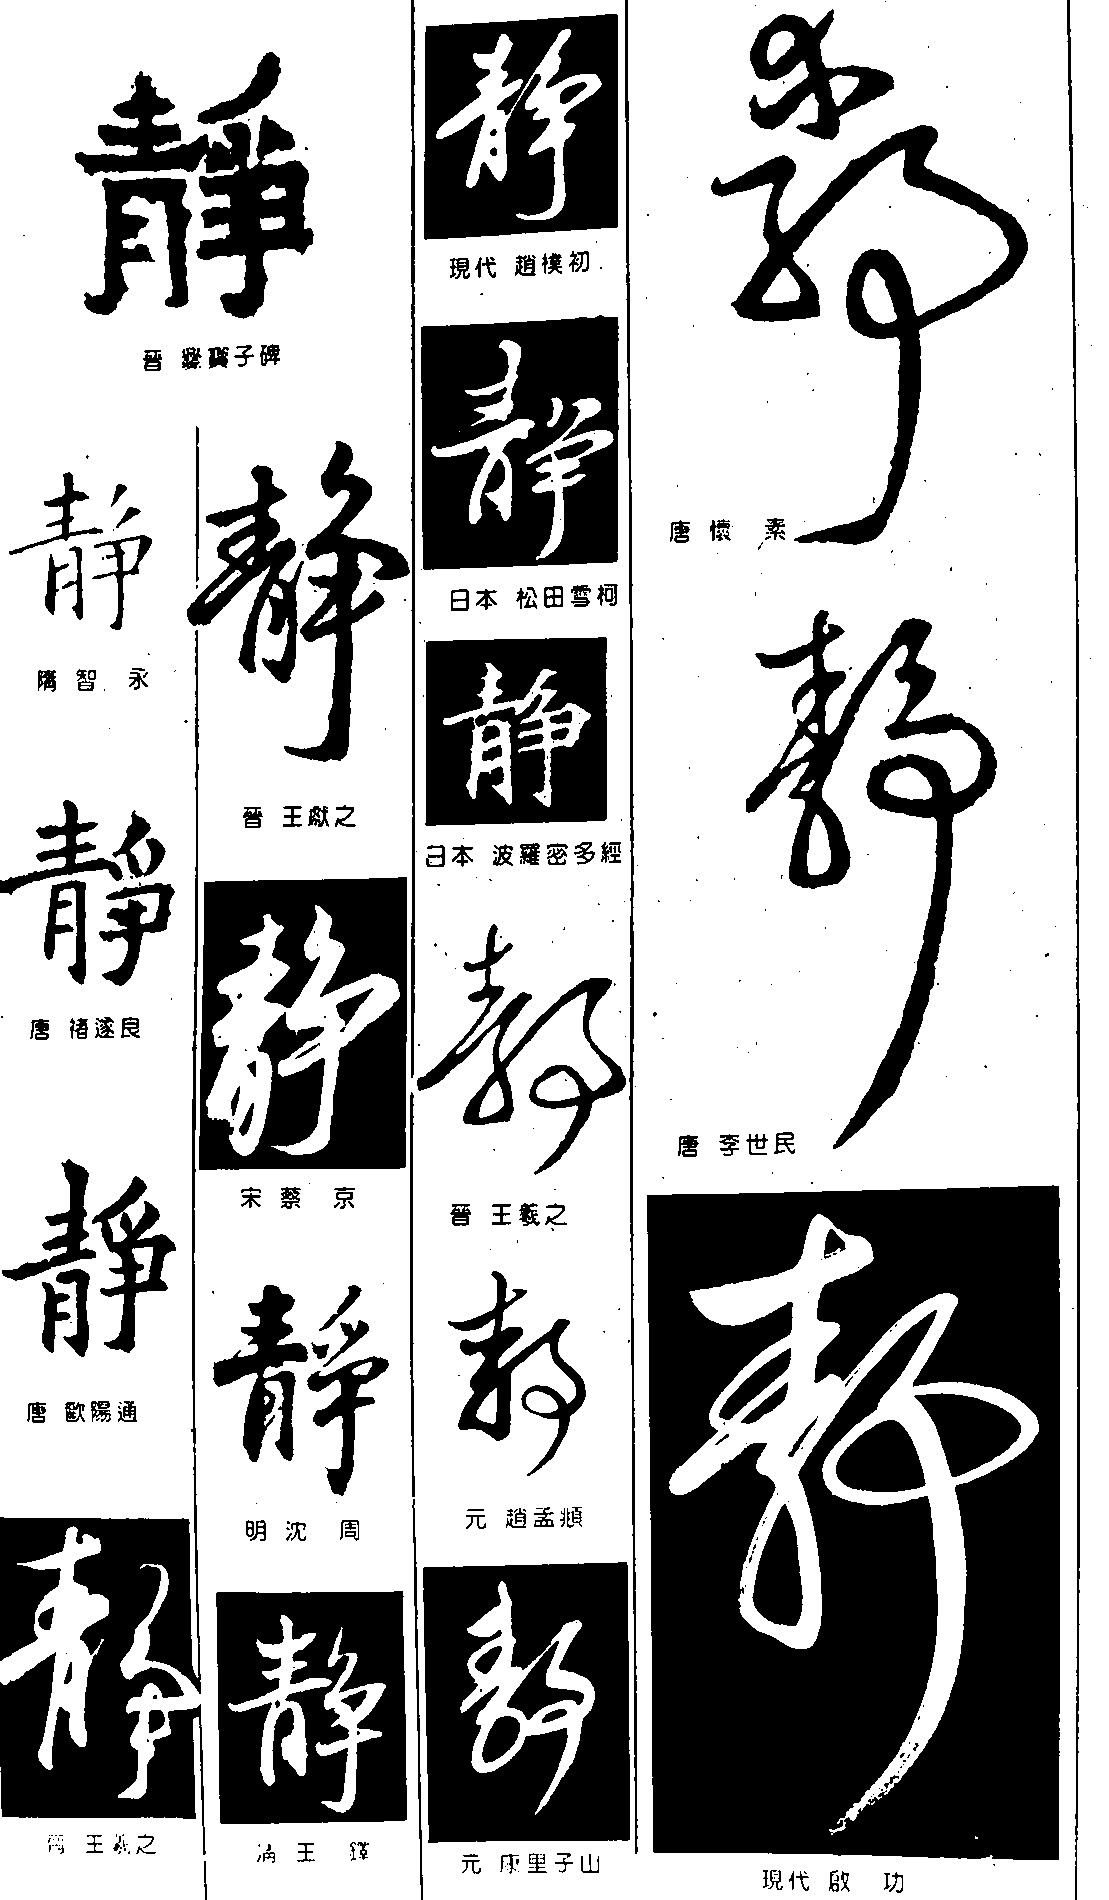 靜
晉 爨寶子碑
靜
隋 智 永
靜
唐 褚遂良
靜
唐 歐陽通
靜
晉 王羲之
靜
晉 王獻之
靜
宋 蔡 京
靜
明 沈 周
靜
清 王 鐸
靜
現代 趙樸初
靜
日本 松田雪柯
靜
日本 波羅密多經
靜
晉 王羲之
靜
元 趙孟頫
靜
元 康里子山
靜
唐 懷 素
靜
唐 李世民
靜
現代 啟 功